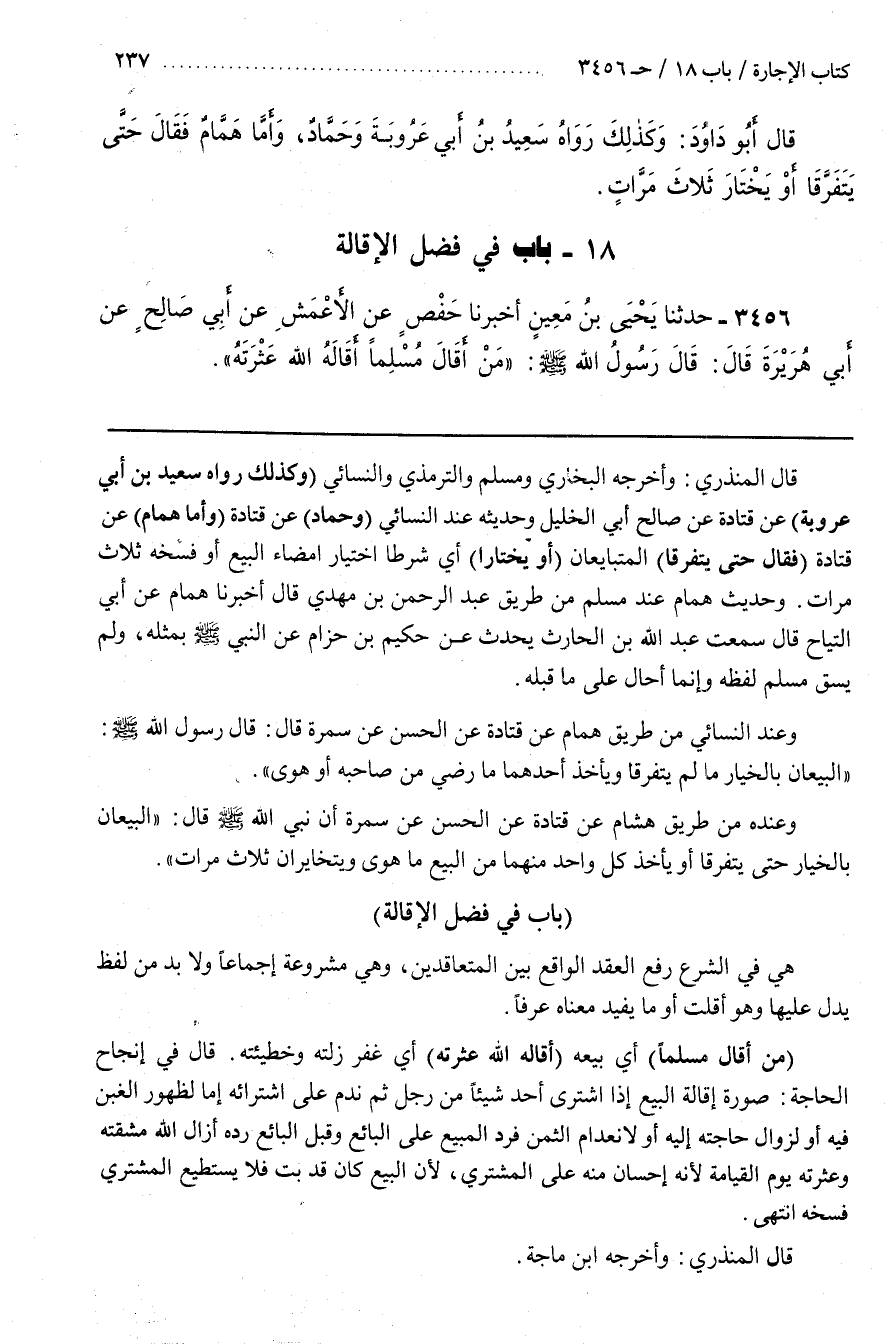 كتاب الإجارة / باب ١٨ / حـ ٣٤٥٦ ........................................ ٢٣٧
قال أَبُو دَاوُدَ: وَكَذٰلِكَ رَوَاهُ سَعِيدُ بنُ أَبي عَرُوبَـةَ وَحَمَّادٌ، وَأَمَّا هَمَّامٌ فَقَالَ حَتَّى
يَتَفَرَّقَا أَوْ يَخْتَارَ ثَلاثَ مَرَّاتٍ.
١٨ - باب في فضل الإقالة
٣٤٥٦ - حدثنا يَحْيَى بنُ مَعِينٍ أخبرنا حَفْصٍ عن الأَعْمَشِ عن أَبِي صَالِحٍ عن
أَبي هُرَيْرَةَ قَالَ: قَالَ رَسُولُ الله ﷺ: «مَنْ أَقَالَ مُسْلِماً أَقَالَهُ الله عَثْرَتَهُ».
قال المنذري: وأخرجه البخاري ومسلم والترمذي والنسائي (وكذلك رواه سعيد بن أبي
عروبة) عن قتادة عن صالح أبي الخليل وحديثه عند النسائي (وحماد) عن قتادة (وأما همام) عن
قتادة (فقال حتى يتفرقا) المتبايعان (أو يختارا) أي شرطا اختيار امضاء البيع أو فسخه ثلاث
مرات. وحديث همام عند مسلم من طريق عبد الرحمن بن مهدي قال أخبرنا همام عن أبي
التياح قال سمعت عبد الله بن الحارث يحدث عـن حكيم بن حزام عن النبي ﷺ بمثله، ولم
يسق مسلم لفظه وإنما أحال على ما قبله.
وعند النسائي من طريق همام عن قتادة عن الحسن عن سمرة قال: قال رسول الله ﷺ:
«البيعان بالخيار ما لم يتفرقا ويأخذ أحدهما ما رضي من صاحبه أو هوى».
وعنده من طريق هشام عن قتادة عن الحسن عن سمرة أن نبي الله ﷺ قال: «البيعان
بالخيار حتى يتفرقا أو يأخذ كل واحد منهما من البيع ما هوى ويتخايران ثلاث مرات».
(باب في فضل الإقالة)
هي في الشرع رفع العقد الواقع بين المتعاقدين، وهي مشروعة إجماعاً ولا بد من لفظ
يدل عليها وهو أقلت أو ما يفيد معناه عرفاً.
(من أقال مسلماً) أي بيعه (أقاله الله عثرته) أي غفر زلته وخطيئته. قال في إنجاح
الحاجة: صورة إقالة البيع إذا اشترى أحد شيئاً من رجل ثم ندم على اشترائه إما لظهور الغبن
فيه أو لزوال حاجته إليه أو لانعدام الثمن فرد المبيع على البائع وقبل البائع رده أزال الله مشقته
وعثرته يوم القيامة لأنه إحسان منه على المشتري، لأن البيع كان قد بت فلا يستطيع المشتري
فسخه انتهى.
قال المنذري: وأخرجه ابن ماجة.